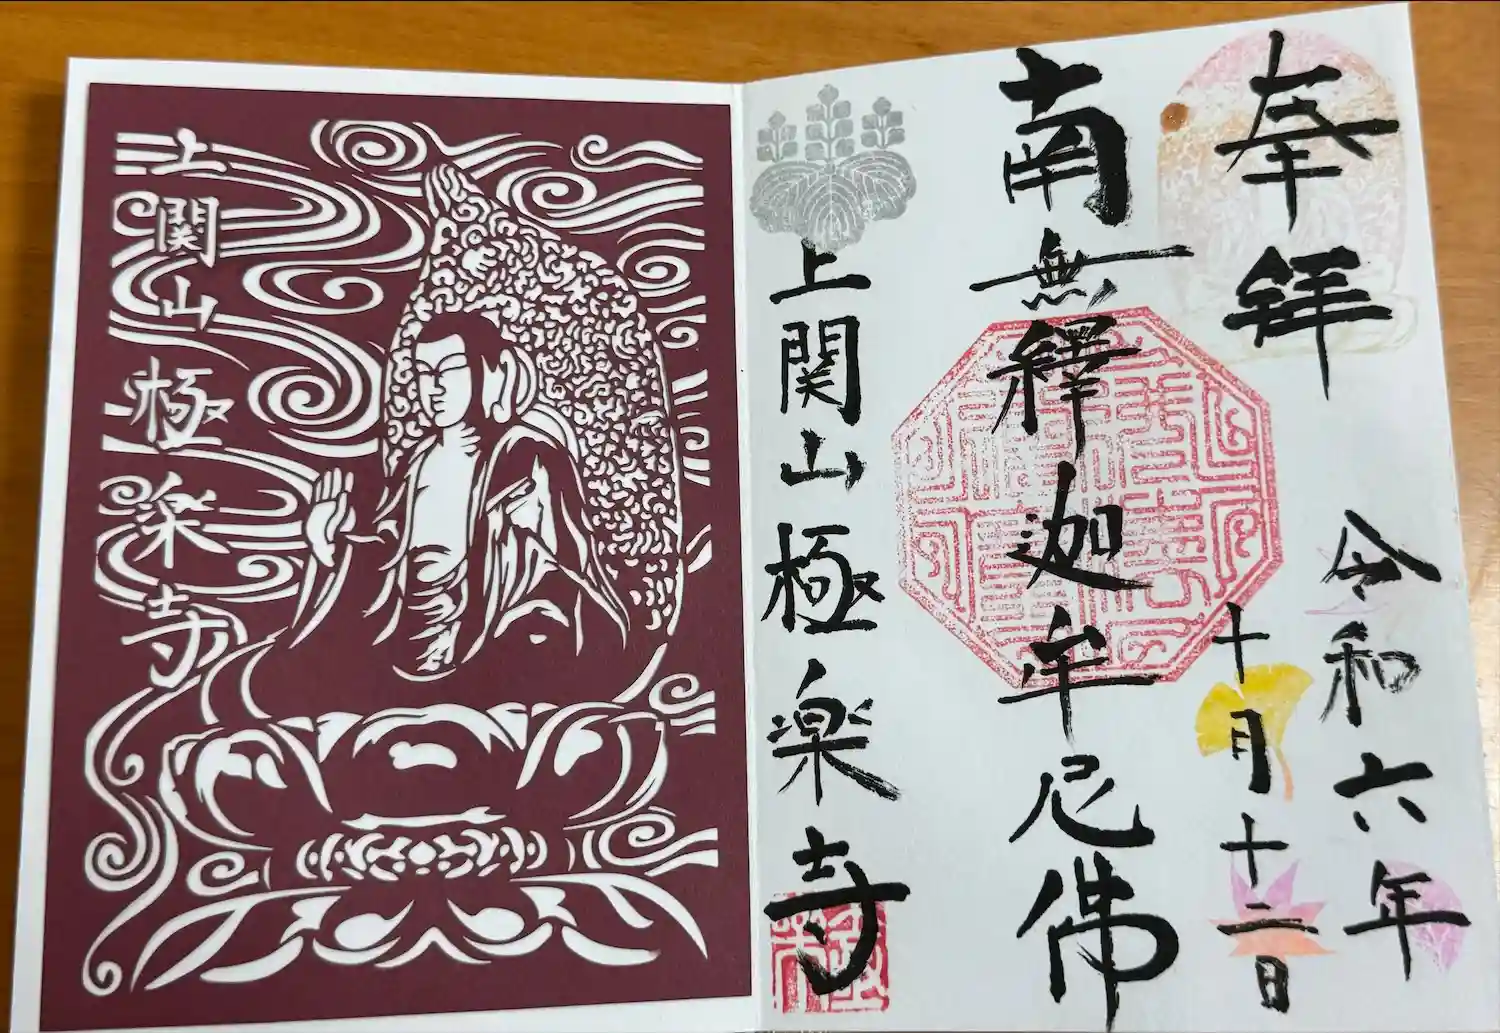 奉拝
令和六年
十月十二日
南無釋迦牟尼佛
上関山極楽寺
上関山極楽寺